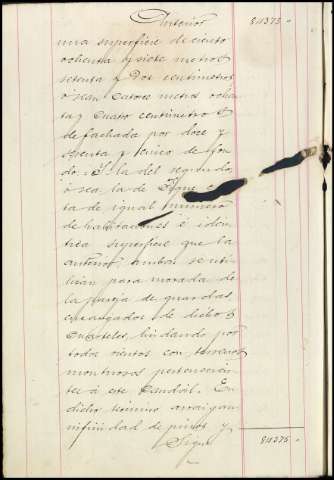 Anterior 8,1375 "
una superficie de ciento
ochenta y siete metros
setenta y dos centimetros
o sean catorce metros ochen
ta y cuatro centimetros
de fachada por doce y
sesenta y cinco de fon
do. Y la del segundo,
ó sea la de
ta de igual numero
de habitaciones é iden
tica superficie que la
anterior, ambas se utili
lizan para morada de
la pareja de guardas
encargados de dichos
cuarteles, lindando por
todos vientos con terrenos
montuosos pertenecien
tes á este caudal. En
dicho termino
infinidad de pinos y
Sigue 8,1375 "